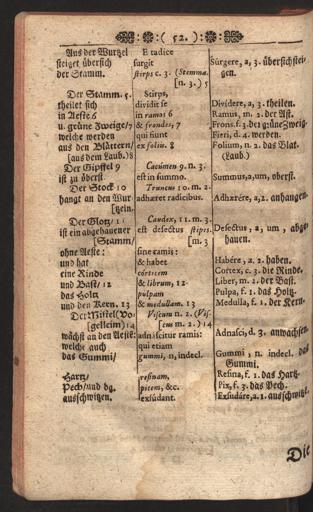 :( 52. ):
Aus der Wurtzel
steiget übersich
der Stamm.
Der Stamm 5.
theilet sich
in Aeste 6
u. grüne Zweige/7
welche werden
aus den Blättern/
[aus dem Laub.)8
Der Gipffel 9
ist zu öberst.
Der Stock 10
hangt an den Wur
[tzeln.
Der Glotz/ 11
ist ein abgehauener
[Stamm/
ohne Aeste:
und hat
eine Rinde
und Bast/ 12
das Holtz
und den Kern. 13
Der Mistel (Vo-
[gelleim) 14
wächst an den Aesten:
welche auch
das Gummi/
Hartz/
Pech/und dg.
ausschwitzen.
E radice
surgit
stirps c. 3. (Stemma.
[n. 3.) 5
Stirps,
dividit se
in ramos 6
& frondes; 7
qui fiunt
ex foliis. 8
Cacúmen 9. n. 3.
est in summo.
Truncus 10. m. 2.
adhæret radicibus.
Caudex, 11. m. 3.
est desectus stipes.
[m. 3
sine ramis:
& habet
corticem
& librum, 12
pulpam
& medullam. 13
Viscum n. 2. (Vis-
[cus m. 2.) 14
adnascitur ramis:
qui etiam
gummi, n, indecl.
resinam,
picem, &c.
exsúdant.
Súrgere, a, 3. übersich stei-
gen.
Dividere, a, 3. theilen.
Ramus, m. 2. der Ast.
Frons. f. 3. der grüne Zweig.
Fieri, d. 4. werden.
Folium, n. 2. das Blat.
(Laub.)
Summus,a,um, oberst.
Adhærére, a, 2. anhangen.
Desectus, a, um, abge-
hauen.
Habére, a, 2. haben.
Cortex, c. 3. die Rinde.
Liber, m. 2. der Bast.
Pulpa, f. 1. das Holtz.
Medulla, f. 1. der Kern.
Adnasci, d. 3. anwachsen.
Gummi, n. indecl. das
Gummi.
Resina, f. 1. das Hartz.
Pix, f. 3. das Pech.
Exsudáre, a. 1. ausschwitz.
Die